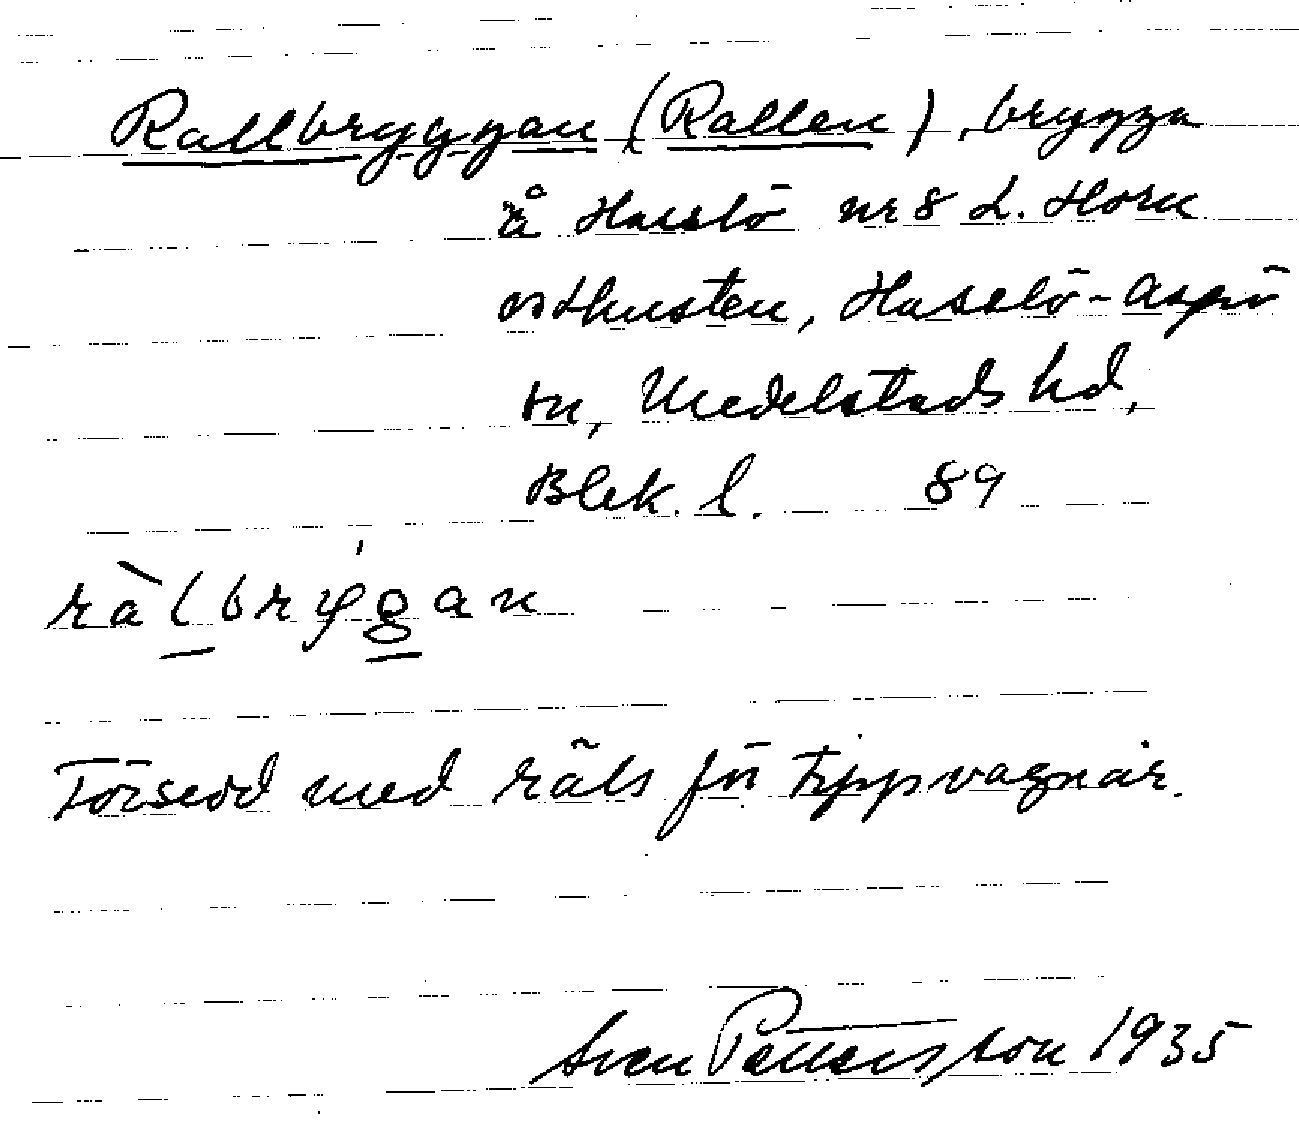 Rallbryggan (Rallen), brygga
å Hasslö nr 8 L. Horn
ostkusten, Hasslö-Aspö
sn, Medelstads hd,
Blek. l. 89
ràlbrýgan
Försedd med räls för tippvagnar.
Sven Pettersson 1935